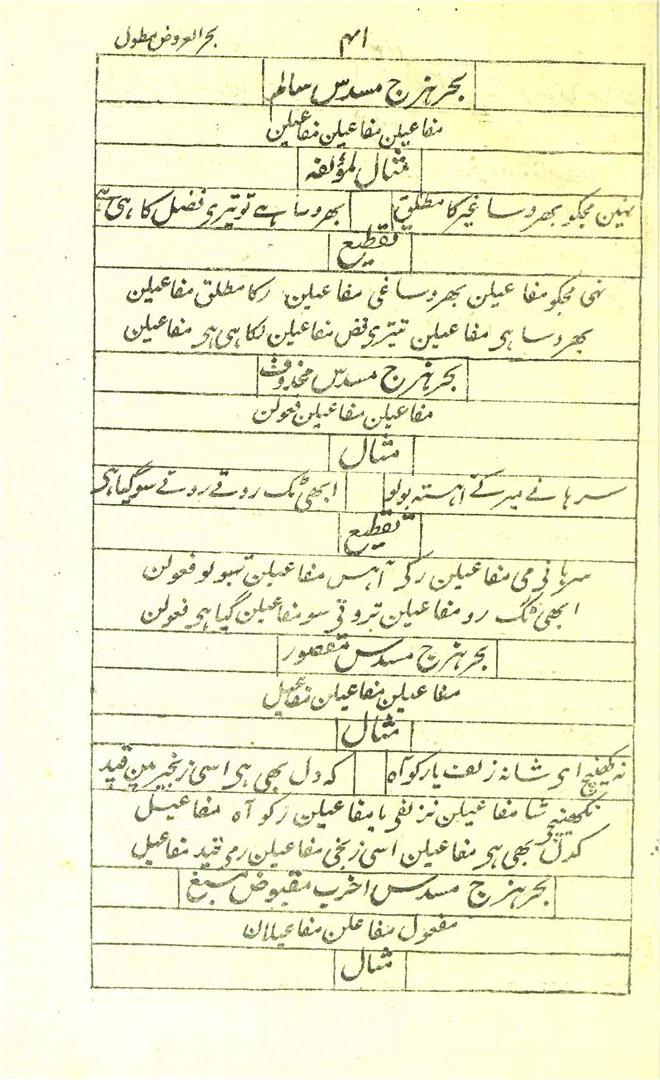 بحر العروض مطول
۴۱
بحر ہزج مسدس سالم
مفاعیلن مفاعیلن مفاعیلن
مثال لمؤلفہ
نہین مجکو بھروسا غیر کا مطلق بھروسا ہے تو تیری فضل کا ہی ہے
تقطیع
نہی مجکو مفاعیلن بھروسا غی مفاعیلن رکا مطلق مفاعیلن
بھروسا ہی مفاعیلن تتیری فض مفاعیلن لکا ہی ہی مفاعیلن
بحر ہزج مسدس محذوف
مفاعیلن مفاعیلن فعولن
مثال
سرہانے میر کے آہستہ بولو ابھی ٹک روتے روتے سو گیا ہی
تقطیع
سرہانی می مفاعیلن رکی آہس مفاعیلن تبولو فعولن
ابھی ٹک رو مفاعیلن تروتی سو مفاعیلن گیا ہی فعولن
بحر ہزج مسدس مقصور
مفاعیلن مفاعیلن مفاعیل
مثال
نہ کھینچ ای شانہ زلف یار کو آہ کہ دل بھی ہی اسی زنجیر مین قید
نکھینچی شا مفاعیلن نزلفی یا مفاعیلن رکو آہ مفاعیل
کدل بھی ہی مفاعیلن اسی زنجی مفاعیلن رمی قید مفاعیل
بحر ہزج مسدس اخرب مقبوض مسبغ
مفعول مفاعلن مفاعیلان
مثال